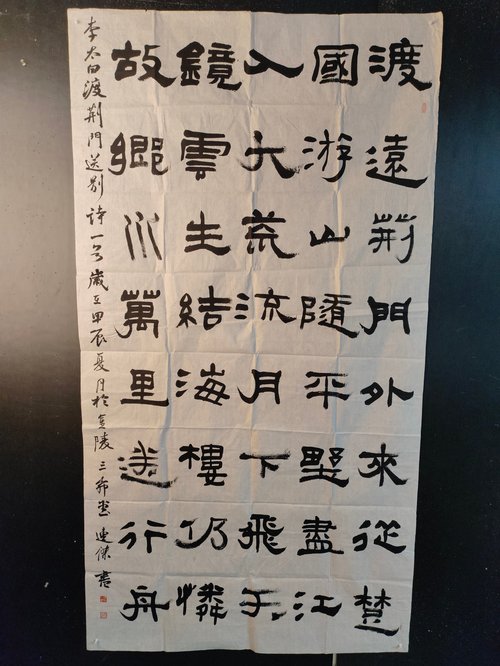 渡遠荊門外來從楚
國游山隨平墅盡江
入大荒流月下飛天
鏡雲生結海樓仍憐
故鄉水萬里送行舟
李太白渡荊門送別詩一首歲在甲辰夏月於金陵三希堂連傑書